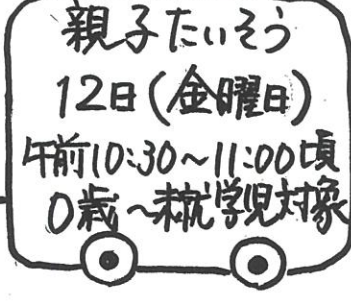 親子たいそう
12日(金曜日)
午前10:30～11:00頃
0歳～未就学児対象